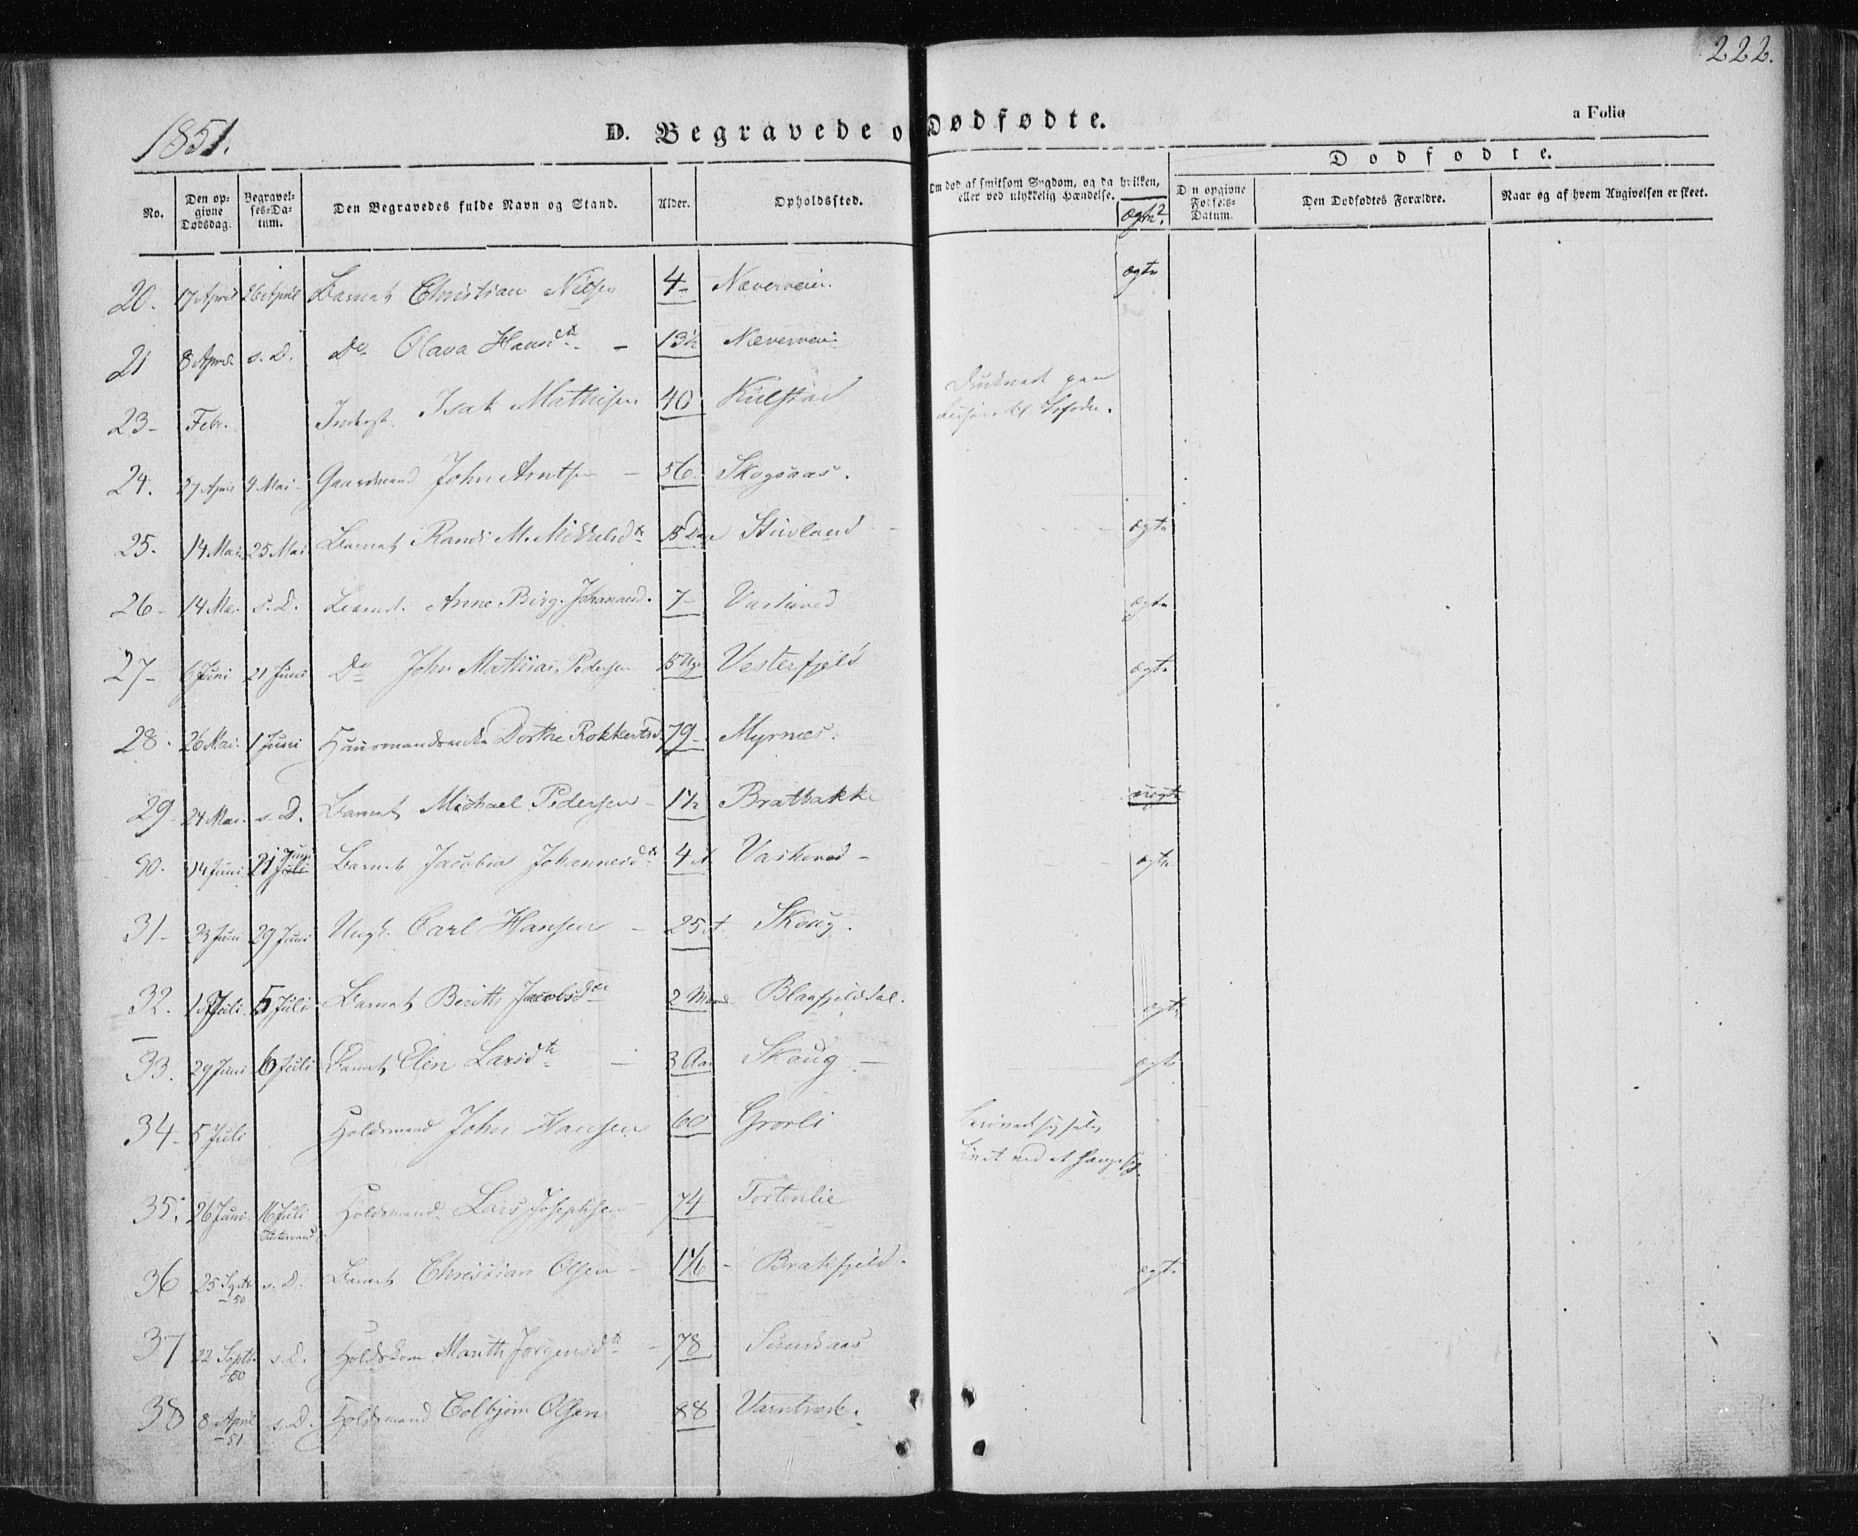 222.
1851.
D. Begravede o
Dødfødte.
a Folio
No.
Den opgivne Dødsdag.
Begravelses-Datum.
Den Begravedes fulde Navn og Stand.
Alder.
Opholdssted.
Om død af smitsom Sygdom, og da hvilken, eller ved ulykkelig Hændelse.
ægte?
Dødfødte.
D n opgivne Fødsels-Datum.
Den Dødfødtes Forældre.
Naar og af hvem Angivelsen er skeet.
20. 17 April 26 April Barnet Christian Nilsen 4 - Næverveien. ægte
21 8 April s. D. Do Olava Hansdt. - 13 1/2 Næverveien
23 - Febr. Inderst. Isak Mathisen 40 Kulstad Druknet paa Reisen til Lofoden.
24. 27 April 9 Mai - Gaardmand John Arntsen - 56. Skogsaas.
25. 14 Mai 25 Mai Barnet Randi M. Mikkelsdt 15 Dage Stuvland - ægte
26 - 14 Mai s. D. Barnet. Anne Birg. Johannesd. 7 - ægte
27 - 6 Juni 21 Juni Do John Mathias Pedersen 15 Uger Vesterfjeld ægte
28. 26 Mai. 1 Juni Huusmandsenke Dorthe Rokkertsd 79 - Myrnes.
29 - 24 Mai. s. D. Barnet Michael Pedersen - 1 1/2 Bratbakke uægte
30. 14 Juni 21 Juli Juni Barnet Jacobia Johannesdt 4 A - ægte
31 - 23 Juni 29 Juni Ungk. Carl Hansen - 25 A. Skaug.
32. 1 Juli. 5 Juli Barnet Berith Jacobsdtr 2 Maan Blaafjelddal. ægte
33. 29 Juni 6 Juli Barnet Elen Larsdt - 3 Aar Skaug - ægte
34 - 5 Juli Holdsmand John Hansen 60 Grovli Livet ved at hænge sig.
35. 26 Juni 16 Juli Holdsmand Lars Josephsen - 74 Tortenlie
36 25 Septbr - 50 s. D. Barnet Christian Olsen - 1 1/6 - Bratfjeld. ægte
37 22 Septb. - 50 s. D. Holdskone Marith Jørgensdt - 78
38 8 April - 51 s. D. Holdsmand Colbjørn Olsen 88